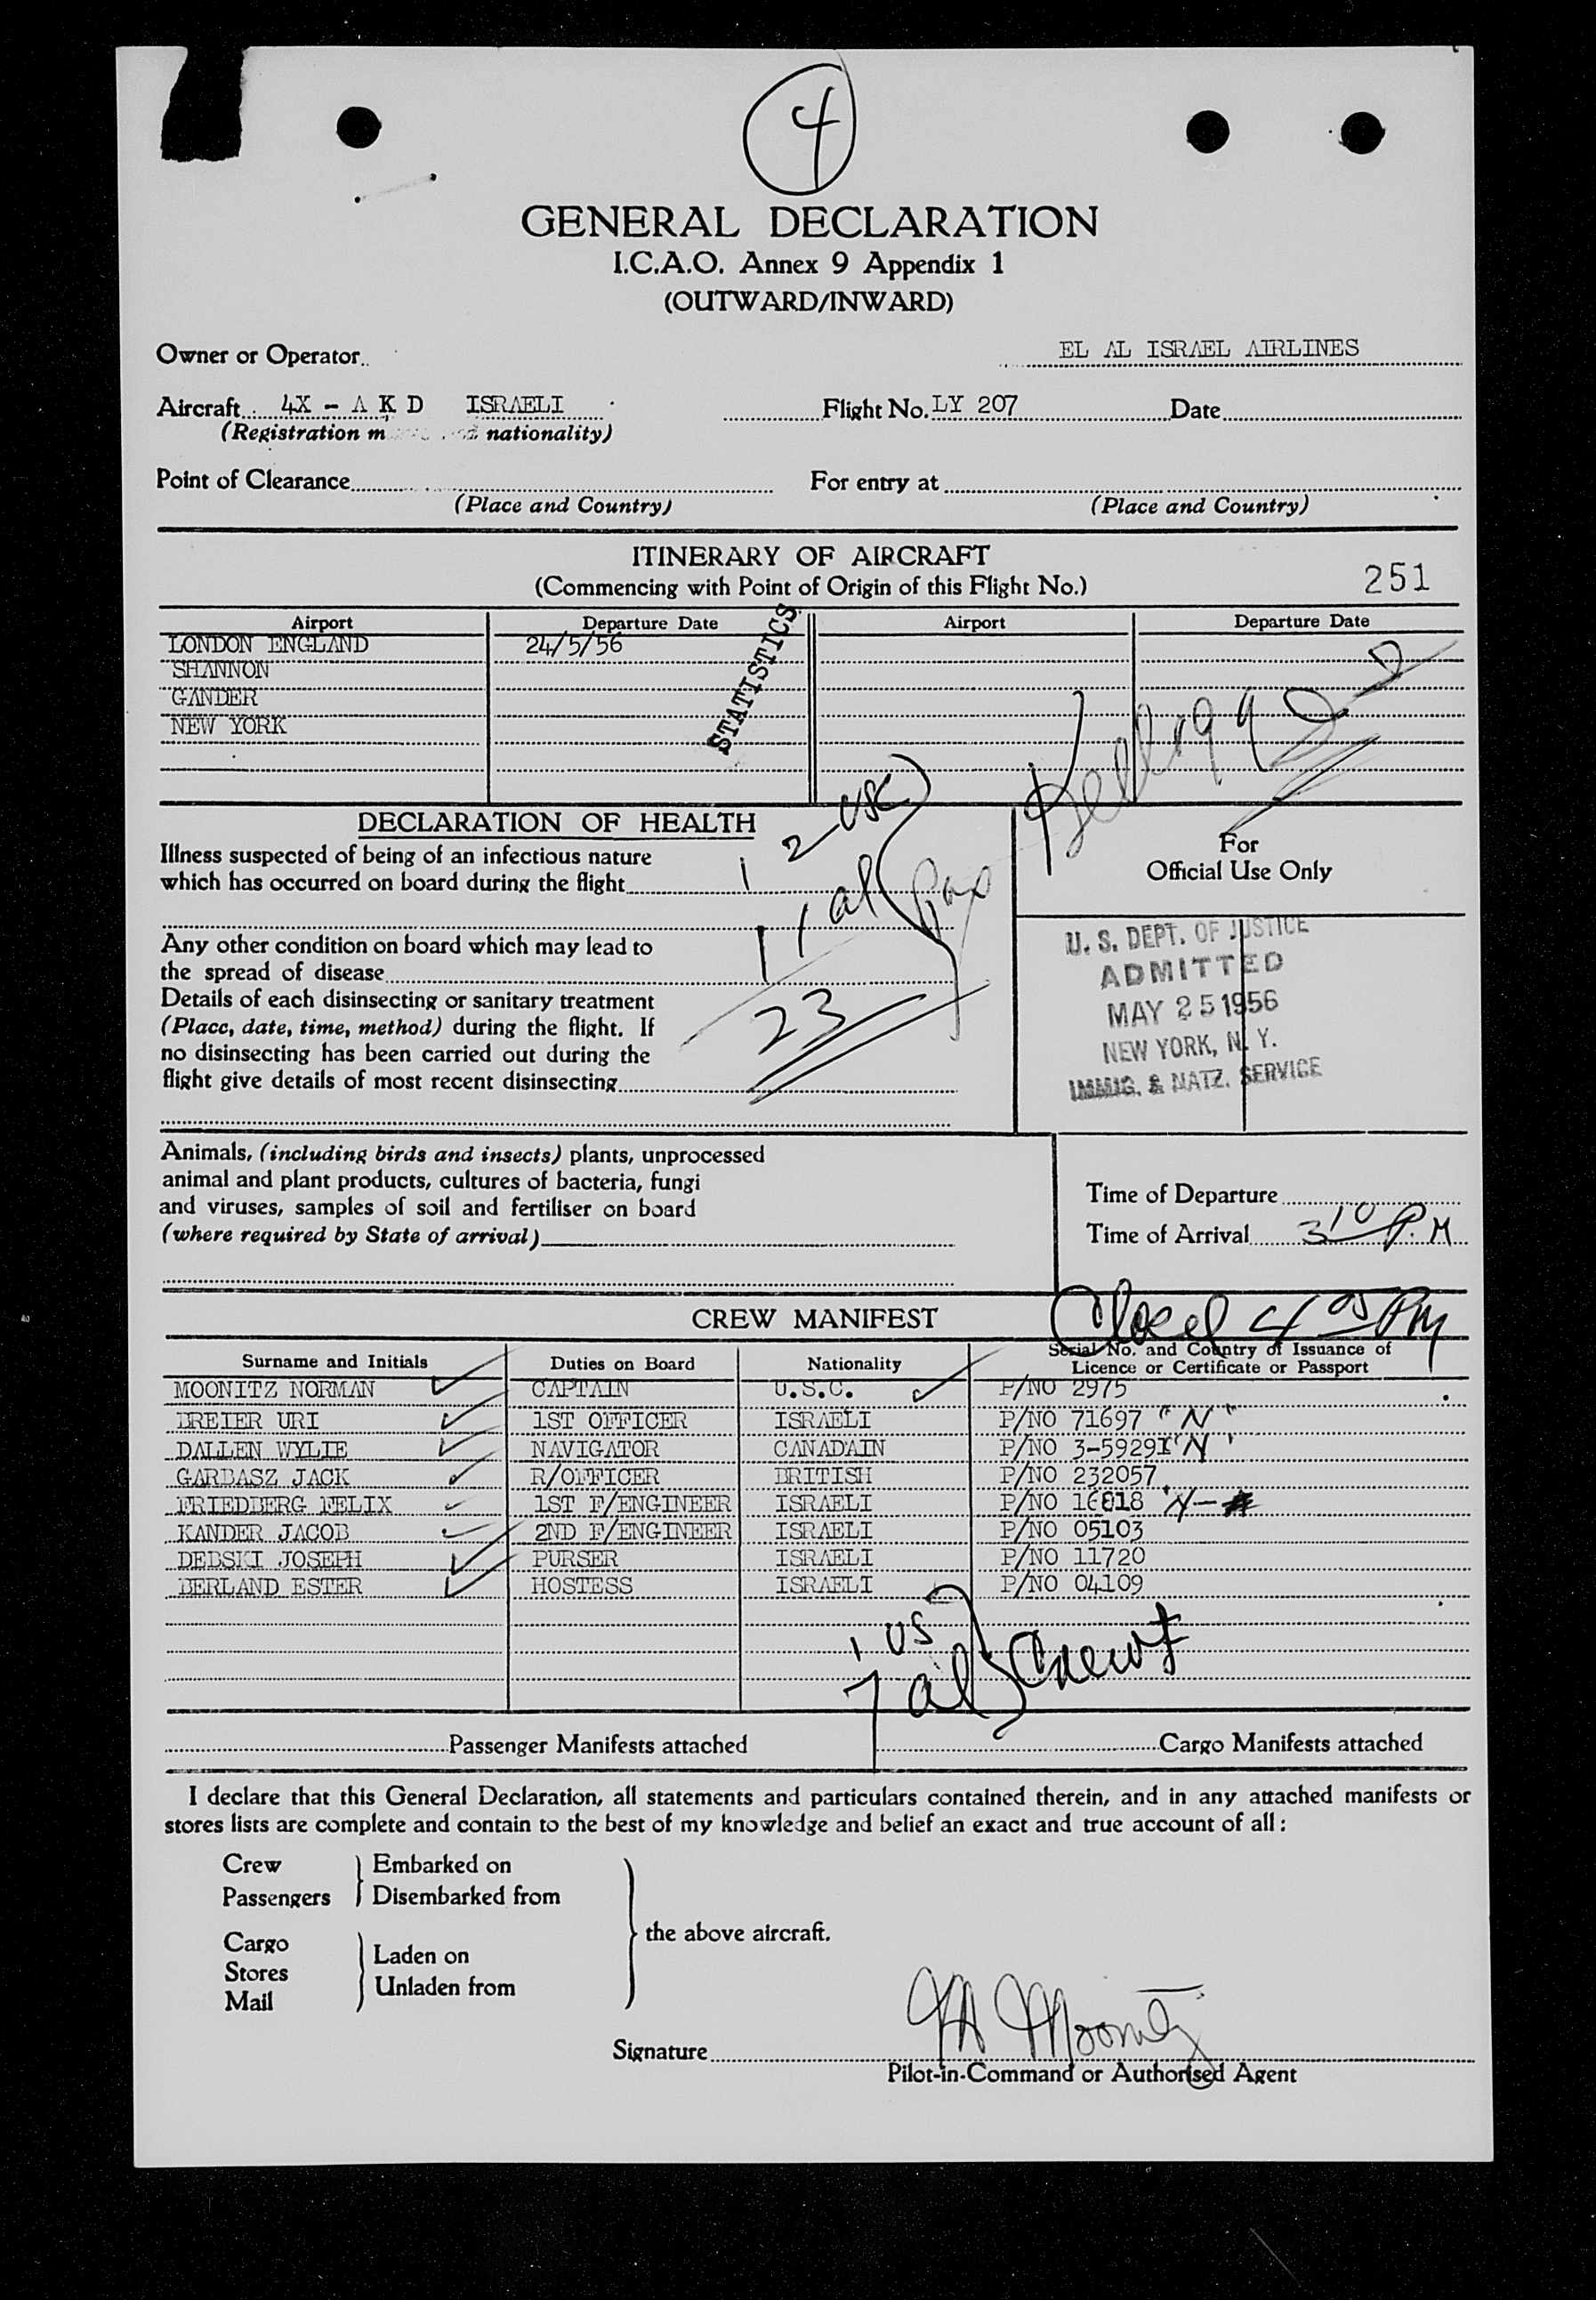 4
GENERAL DECLARATION
I.C.A.O. Annex 9 Appendix 1
(OUTWARD/INWARD)
Owner or Operator EL AL ISRAEL AIRLINES
Aircraft 4X - A K D ISRAELI Flight No. LY 207 Date
(Registration m nationality)
Point of Clearance For entry at
(Place and Country) (Place and Country)
ITINERARY OF AIRCRAFT
(Commencing with Point of Origin of this Flight No.) 251
Airport Departure Date Airport Departure Date
LONDON ENGLAND 24/5/56
SHANNON
GANDER
NEW YORK
STATISTICS
Kellogg
2 USC
DECLARATION OF HEALTH
Illness suspected of being of an infectious nature
which has occurred on board during the flight
al pax
Any other condition on board which may lead to
the spread of disease
Details of each disinsecting or sanitary treatment
(Place, date, time, method) during the flight. If
no disinsecting has been carried out during the
flight give details of most recent disinsecting
23
For
Official Use Only
U. S. DEPT. OF JUSTICE
ADMITTED
MAY 25 1956
NEW YORK, N. Y.
IMMIG. & NATZ. SERVICE
Animals, (including birds and insects) plants, unprocessed
animal and plant products, cultures of bacteria, fungi
and viruses, samples of soil and fertiliser on board
(where required by State of arrival)
Time of Departure
Time of Arrival 3 10 P.M
Closed 4 05 PM
CREW MANIFEST
Surname and Initials Duties on Board Nationality Serial No. and Country of Issuance of
Licence or Certificate or Passport
MOONITZ NORMAN CAPTAIN U.S.C. P/NO 2975
DREIER URI 1ST OFFICER ISRAELI P/NO 71697 "N"
DALLEN WYLIE NAVIGATOR CANADAIN P/NO 3-59291 "N"
GARBASZ JACK R/OFFICER BRITISH P/NO 232057
FRIEDBERG FELIX 1ST F/ENGINEER ISRAELI P/NO 16818
KANDER JACOB 2ND F/ENGINEER ISRAELI P/NO 05103
DEBSKI JOSEPH PURSER ISRAELI P/NO 11720
BERLAND ESTER HOSTESS ISRAELI P/NO 04109
1 US
7 al Crew
Passenger Manifests attached Cargo Manifests attached
I declare that this General Declaration, all statements and particulars contained therein, and in any attached manifests or
stores lists are complete and contain to the best of my knowledge and belief an exact and true account of all :
Crew Embarked on
Passengers Disembarked from
the above aircraft.
Cargo
Laden on
Stores
Unladen from
Mail
Signature N H Moonitz
Pilot-in-Command or Authorised Agent